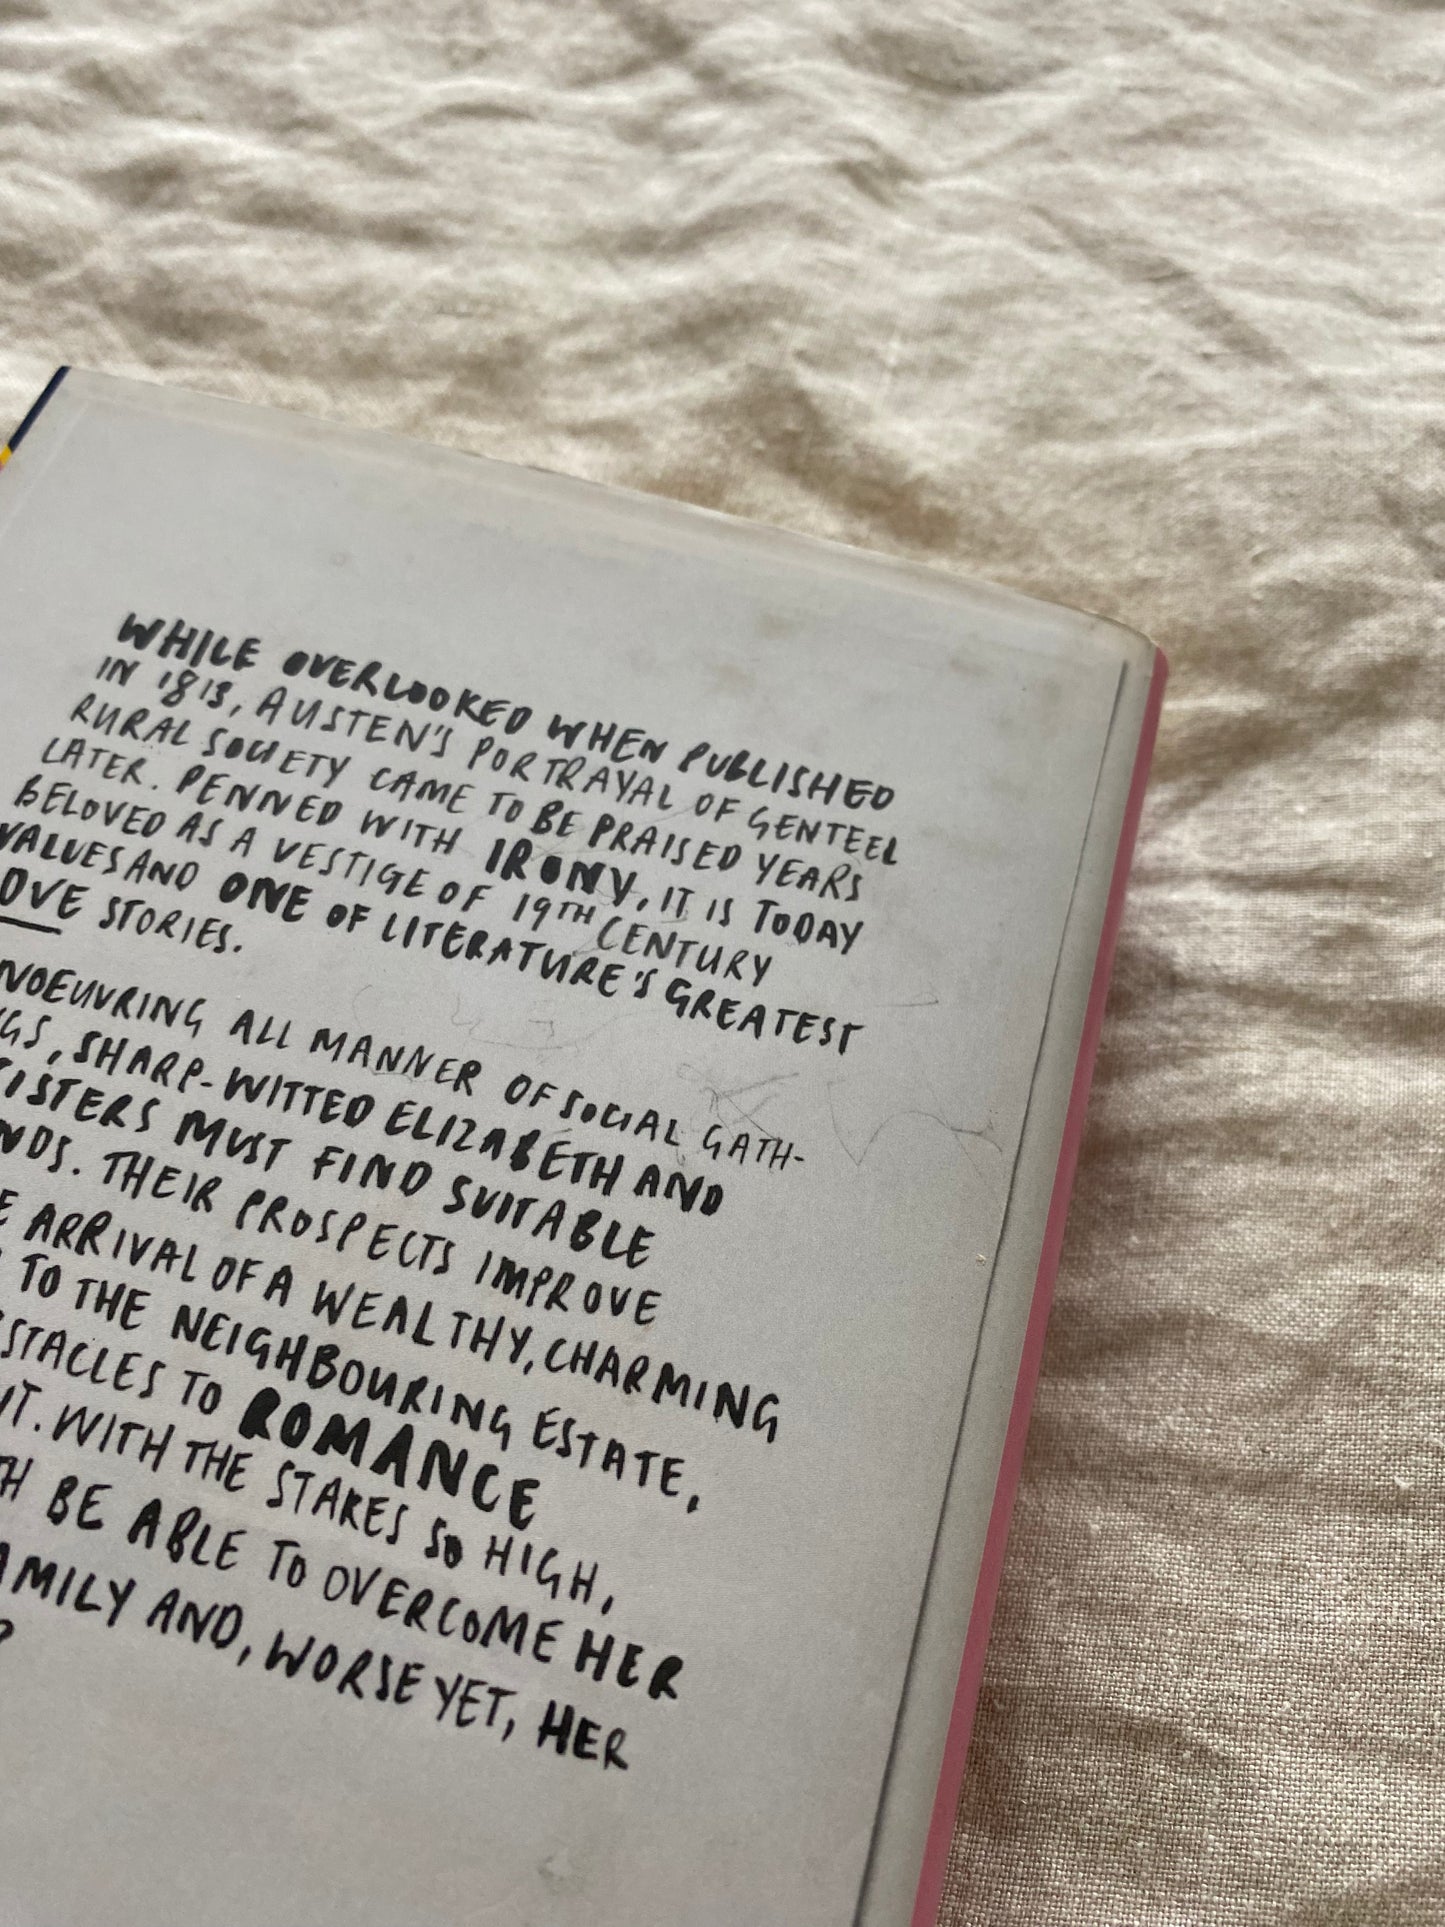 WHILE OVERLOOKED WHEN PUBLISHED
IN 1813, AUSTEN'S PORTRAYAL OF GENTEEL
RURAL SOCIETY CAME TO BE PRAISED YEARS
LATER. PENNED WITH IRONY, IT IS TODAY
BELOVED AS A VESTIGE OF 19TH CENTURY
VALUES AND ONE OF LITERATURE'S GREATEST
STORIES.
ALL MANNER OF SOCIAL GATH-
SHARP-WITTED ELIZABETH AND
SISTERS MUST FIND SUITABLE
THEIR PROSPECTS IMPROVE
ARRIVAL OF A WEALTHY, CHARMING
TO THE NEIGHBOURING ESTATE,
TO ROMANCE
WITH THE STAKES SO HIGH,
BE ABLE TO OVERCOME HER
AND, WORSE YET, HER